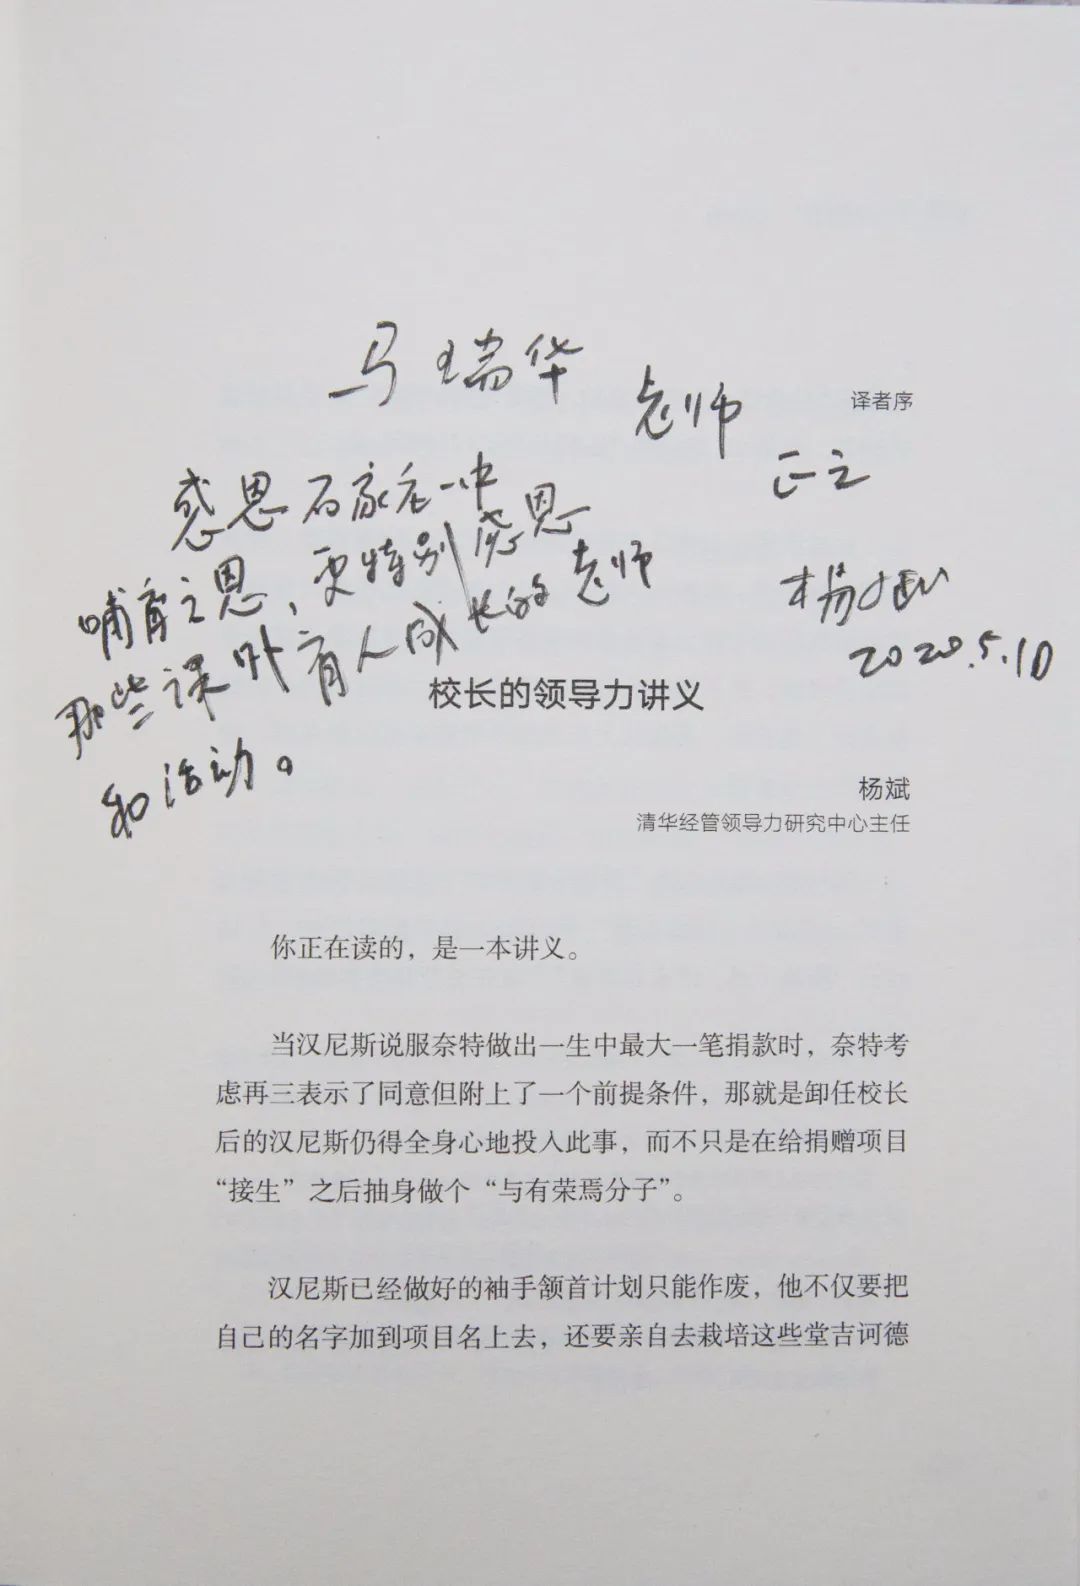 马瑞华
老师
译者序
正之
感恩石家庄一中
哺育之恩、更特别感恩
那些课外育人成长的老师
和活动。
杨斌
2020.5.10
校长的领导力讲义
杨斌
清华经管领导力研究中心主任
你正在读的，是一本讲义。
当汉尼斯说服奈特做出一生中最大一笔捐款时，奈特考
虑再三表示了同意但附上了一个前提条件，那就是卸任校长
后的汉尼斯仍得全身心地投入此事，而不只是在给捐赠项目
“接生”之后抽身做个“与有荣焉分子”。
汉尼斯已经做好的袖手颔首计划只能作废，他不仅要把
自己的名字加到项目名上去，还要亲自去栽培这些堂吉诃德